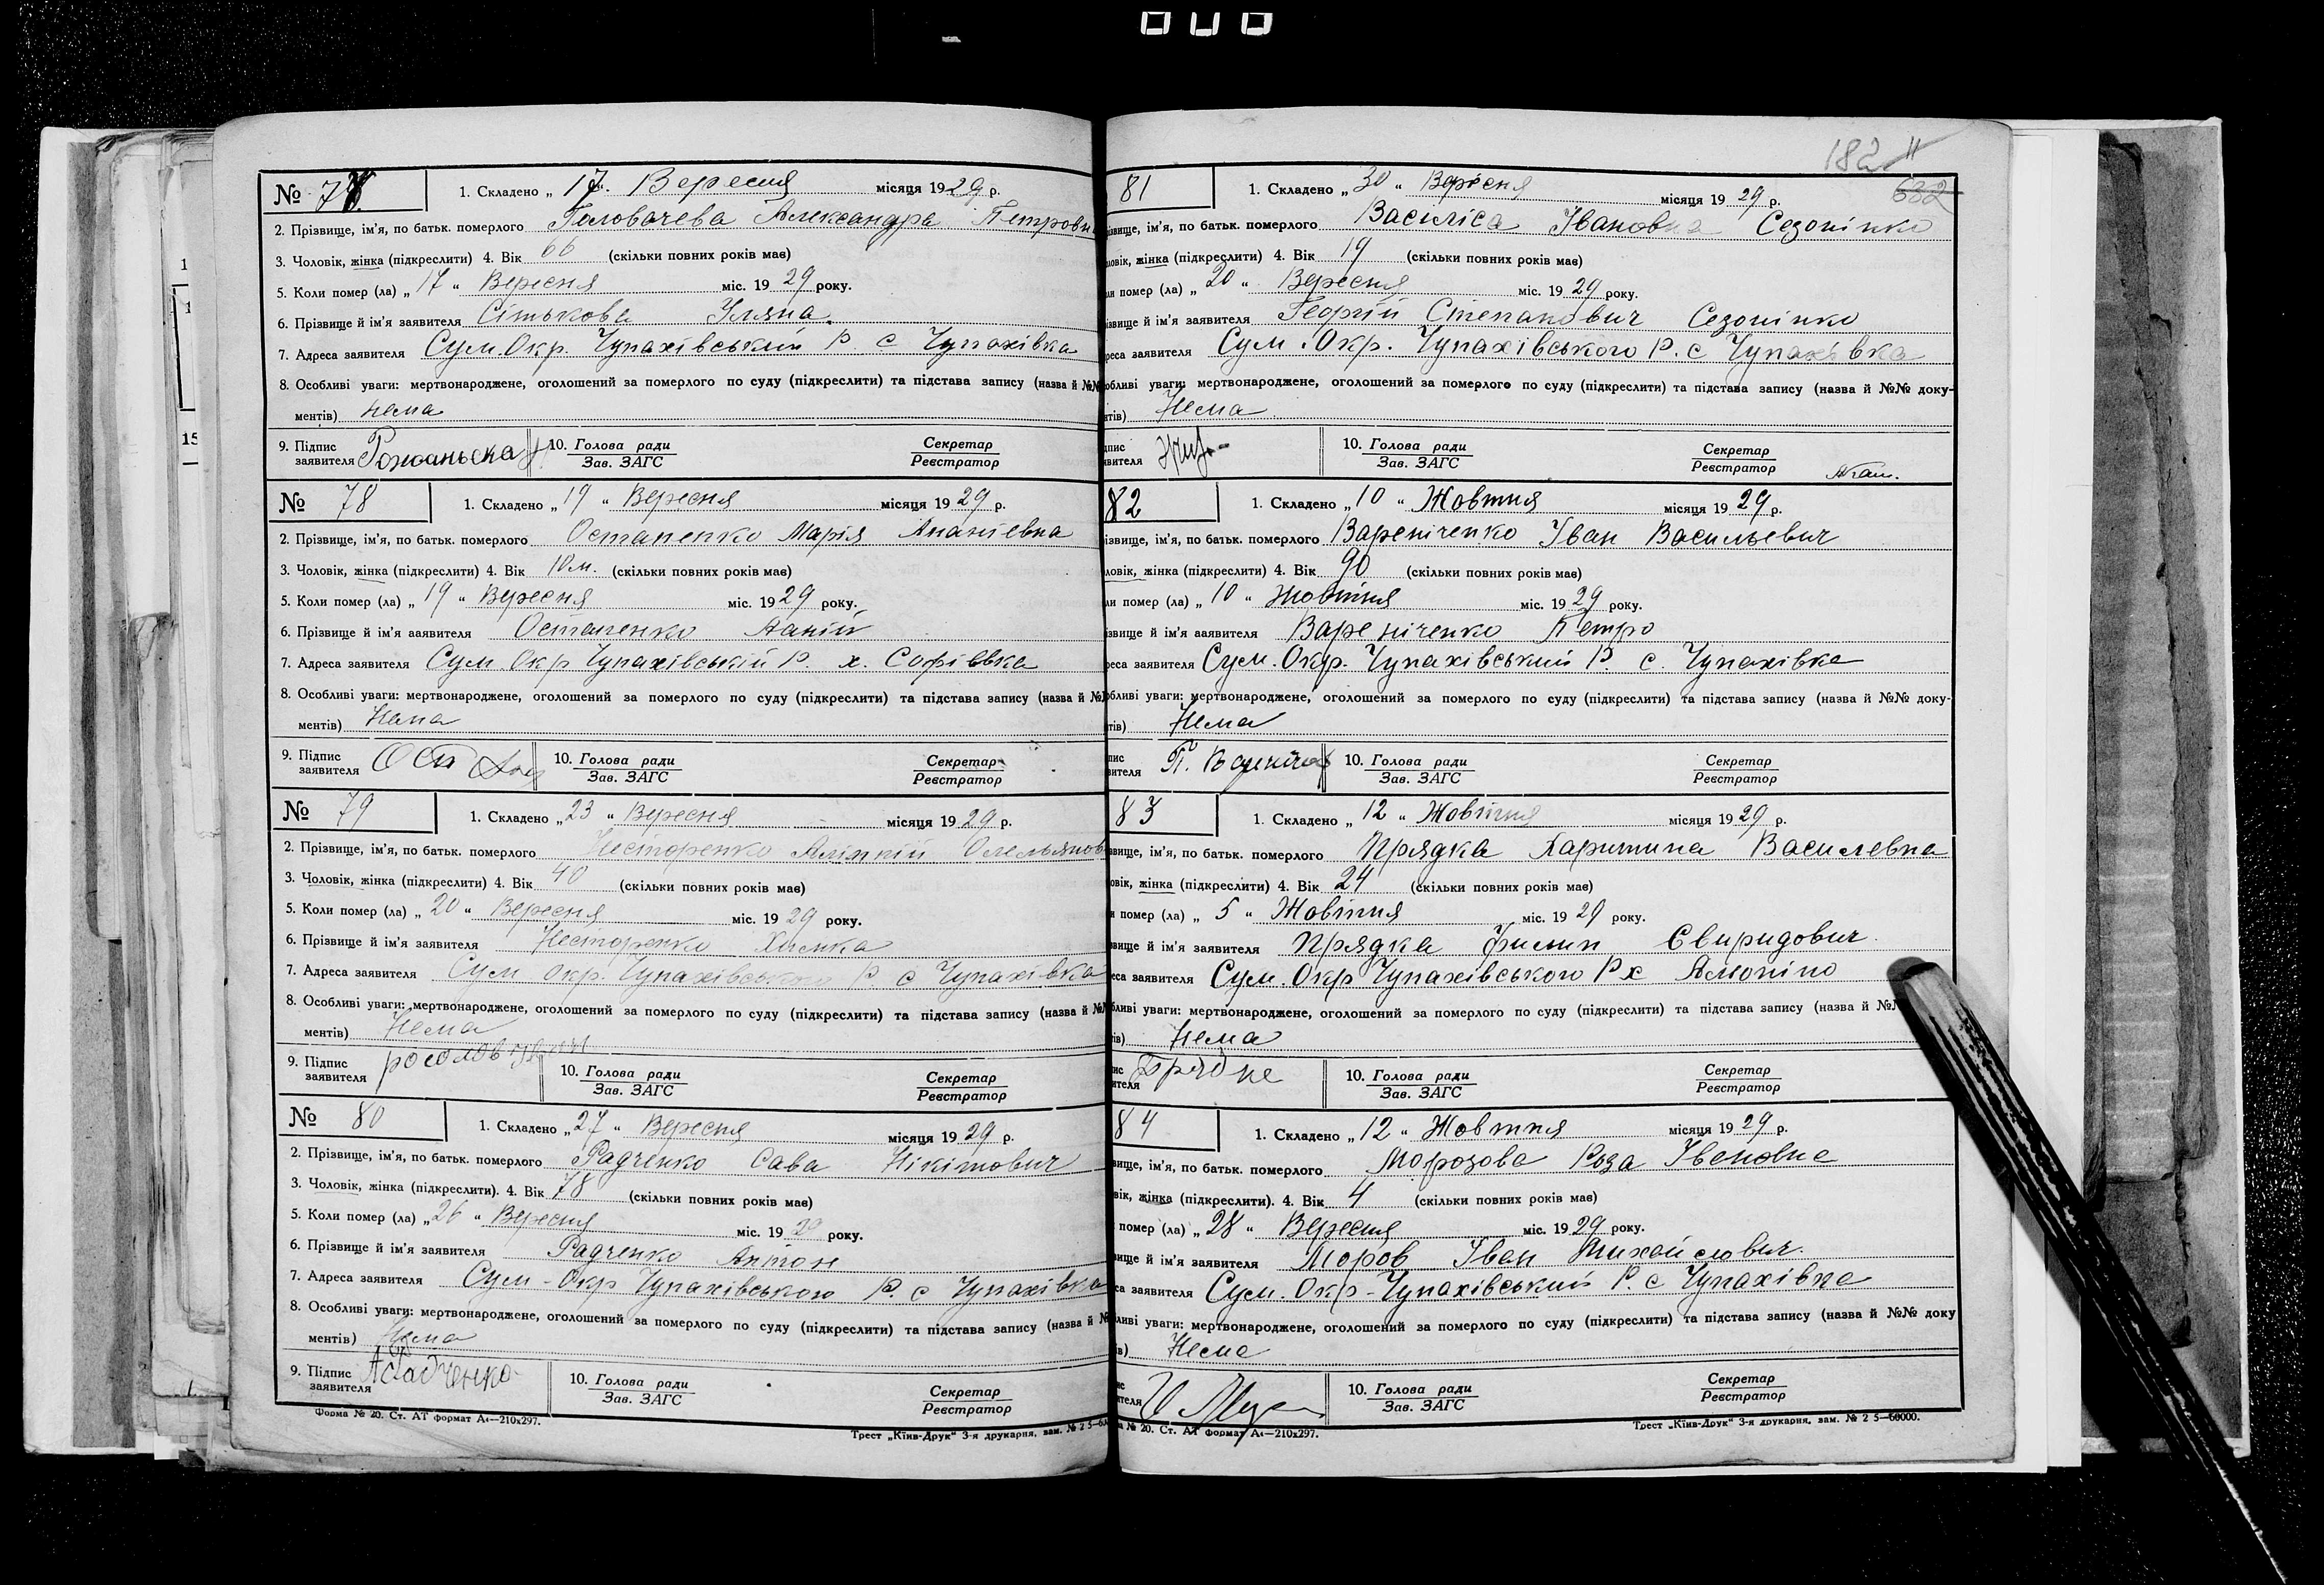 № 77.
1. Складено „17" Вересня місяця 1929 р.
2. Прізвище, ім'я, по батьк. померлого Головачева Александра Петровн
3. Чоловік, жінка (підкреслити) 4. Вік 66 (скільки повних років має)
5. Коли помер (ла) „17" Вересня міс. 1929 року.
6. Прізвище й ім'я заявителя Сітькова Уляна.
7. Адреса заявителя Сум. Окр. Чупахівський Р. с Чупахівка
8. Особливі уваги: мертвонароджене, оголошений за померлого по суду (підкреслити) та підстава запису (назва й №№
ментів) нема
9. Підпис заявителя 10. Голова ради Зав. ЗАГС Секретар Реєстратор
№ 78
1. Складено „19" Вересня місяця 1929 р.
2. Прізвище, ім'я, по батьк. померлого Остапенко Марія Ананіевна
3. Чоловік, жінка (підкреслити) 4. Вік 10 м. (скільки повних років має)
5. Коли помер (ла) „19" Вересня міс. 1929 року.
6. Прізвище й ім'я заявителя Остапенко Наній
7. Адреса заявителя Сум. Окр Чупахівській Р. х. Софіевка
8. Особливі уваги: мертвонароджене, оголошений за померлого по суду (підкреслити) та підстава запису (назва й №
ментів) Нема
9. Підпис заявителя Ост 10. Голова ради Зав. ЗАГС Секретар Реєстратор
№ 79
1. Складено „23" Вересня місяця 1929 р.
2. Прізвище, ім'я, по батьк. померлого Несторенко Олельянов
3. Чоловік, жінка (підкреслити) 4. Вік 40 (скільки повних років має)
5. Коли помер (ла) „20" Вересня міс. 1929 року.
6. Прізвище й ім'я заявителя Несторенко Химка
7. Адреса заявителя Сум Окр. Чупахівського Р. с Чупахівка
8. Особливі уваги: мертвонароджене, оголошений за померлого по суду (підкреслити) та підстава запису (назва й №
ментів) Нема
9. Підпис заявителя 10. Голова ради Зав. ЗАГС Секретар Реєстратор
№ 80
1. Складено „27" Вересня місяця 1929 р.
2. Прізвище, ім'я, по батьк. померлого Радченко Сава Нікітович
3. Чоловік, жінка (підкреслити). 4. Вік 78 (скільки повних років має)
5. Коли помер (ла) „26" Вересня міс. 1929 року.
6. Прізвище й ім'я заявителя Радченко Антон
7. Адреса заявителя Сум - Окр Чупахівського Р. с Чупахівка
8. Особливі уваги: мертвонароджене, оголошений за померлого по суду (підкреслити) та підстава запису (назва й №
ментів) Нема
9. Підпис заявителя 10. Голова ради Зав. ЗАГС Секретар Реєстратор
Форма № 20. Ст. АТ формат А4—210х297.
Трест „Київ-Друк" 3-я друкарня, зам. № 2 5—6
182
632
81
1. Складено „30" Вересня місяця 1929 р.
ізвище, ім'я, по батьк. померлого Василіса Івановна Сезонінко
ловік, жінка (підкреслити) 4. Вік 19 (скільки повних років має)
ли помер (ла) „20" Вересня міс. 1929 року.
ізвище й ім'я заявителя Георгій Степанович Сезонінко
реса заявителя Сум. Окр. Чупахівського Р. с Чупахівка
обливі уваги: мертвонароджене, оголошений за померлого по суду (підкреслити) та підстава запису (назва й №№ доку-
нтів) Нема
дпис явителя 10. Голова ради Зав. ЗАГС Секретар Реєстратор
82
1. Складено „10" Жовтня місяця 1929 р.
ізвище, ім'я, по батьк. померлого Вареніченко Іван Васильевич
ловік, жінка (підкреслити) 4. Вік 90 (скільки повних років має)
ли помер (ла) „10" Жовтня міс. 1929 року.
ізвище й ім'я заявителя Вареніченко Петро
реса заявителя Сум. Окр. Чупахівський Р. с. Чупахівка
обливі уваги: мертвонароджене, оголошений за померлого по суду (підкреслити) та підстава запису (назва й №№ доку-
тів) Нема
пис вителя П. 10. Голова ради Зав. ЗАГС Секретар Реєстратор
83
1. Складено „12" Жовтня місяця 1929 р.
звище, ім'я, по батьк. померлого Прядка Харитина Василевна
овік, жінка (підкреслити) 4. Вік 24 (скільки повних років має)
и помер (ла) „5" Жовтня міс. 1929 року.
звище й ім'я заявителя Прядка Филип Свиридович.
еса заявителя Сум. Окр Чупахівського Р х
бливі уваги: мертвонароджене, оголошений за померлого по суду (підкреслити) та підстава запису (назва й №
ів) Нема
ис ителя 10. Голова ради Зав. ЗАГС Секретар Реєстратор
84
1. Складено „12" Жовтня місяця 1929 р.
вище, ім'я, по батьк. померлого Морозова Роза Івановна
вік, жінка (підкреслити). 4. Вік 4 (скільки повних років має)
помер (ла) „28" Вересня міс. 1929 року.
вище й ім'я заявителя Моров Іван Михайлович.
са заявителя Сум. Окр - Чупахівський Р. с Чупахівка
ливі уваги: мертвонароджене, оголошений за померлого по суду (підкреслити) та підстава запису (назва й №№ доку
ів) Нема
ис ителя 10. Голова ради Зав. ЗАГС Секретар Реєстратор
а № 20. Ст. АТ формат А4—210х297.
Трест „Київ-Друк" 3-я друкарня, зам. № 2 5—60000.